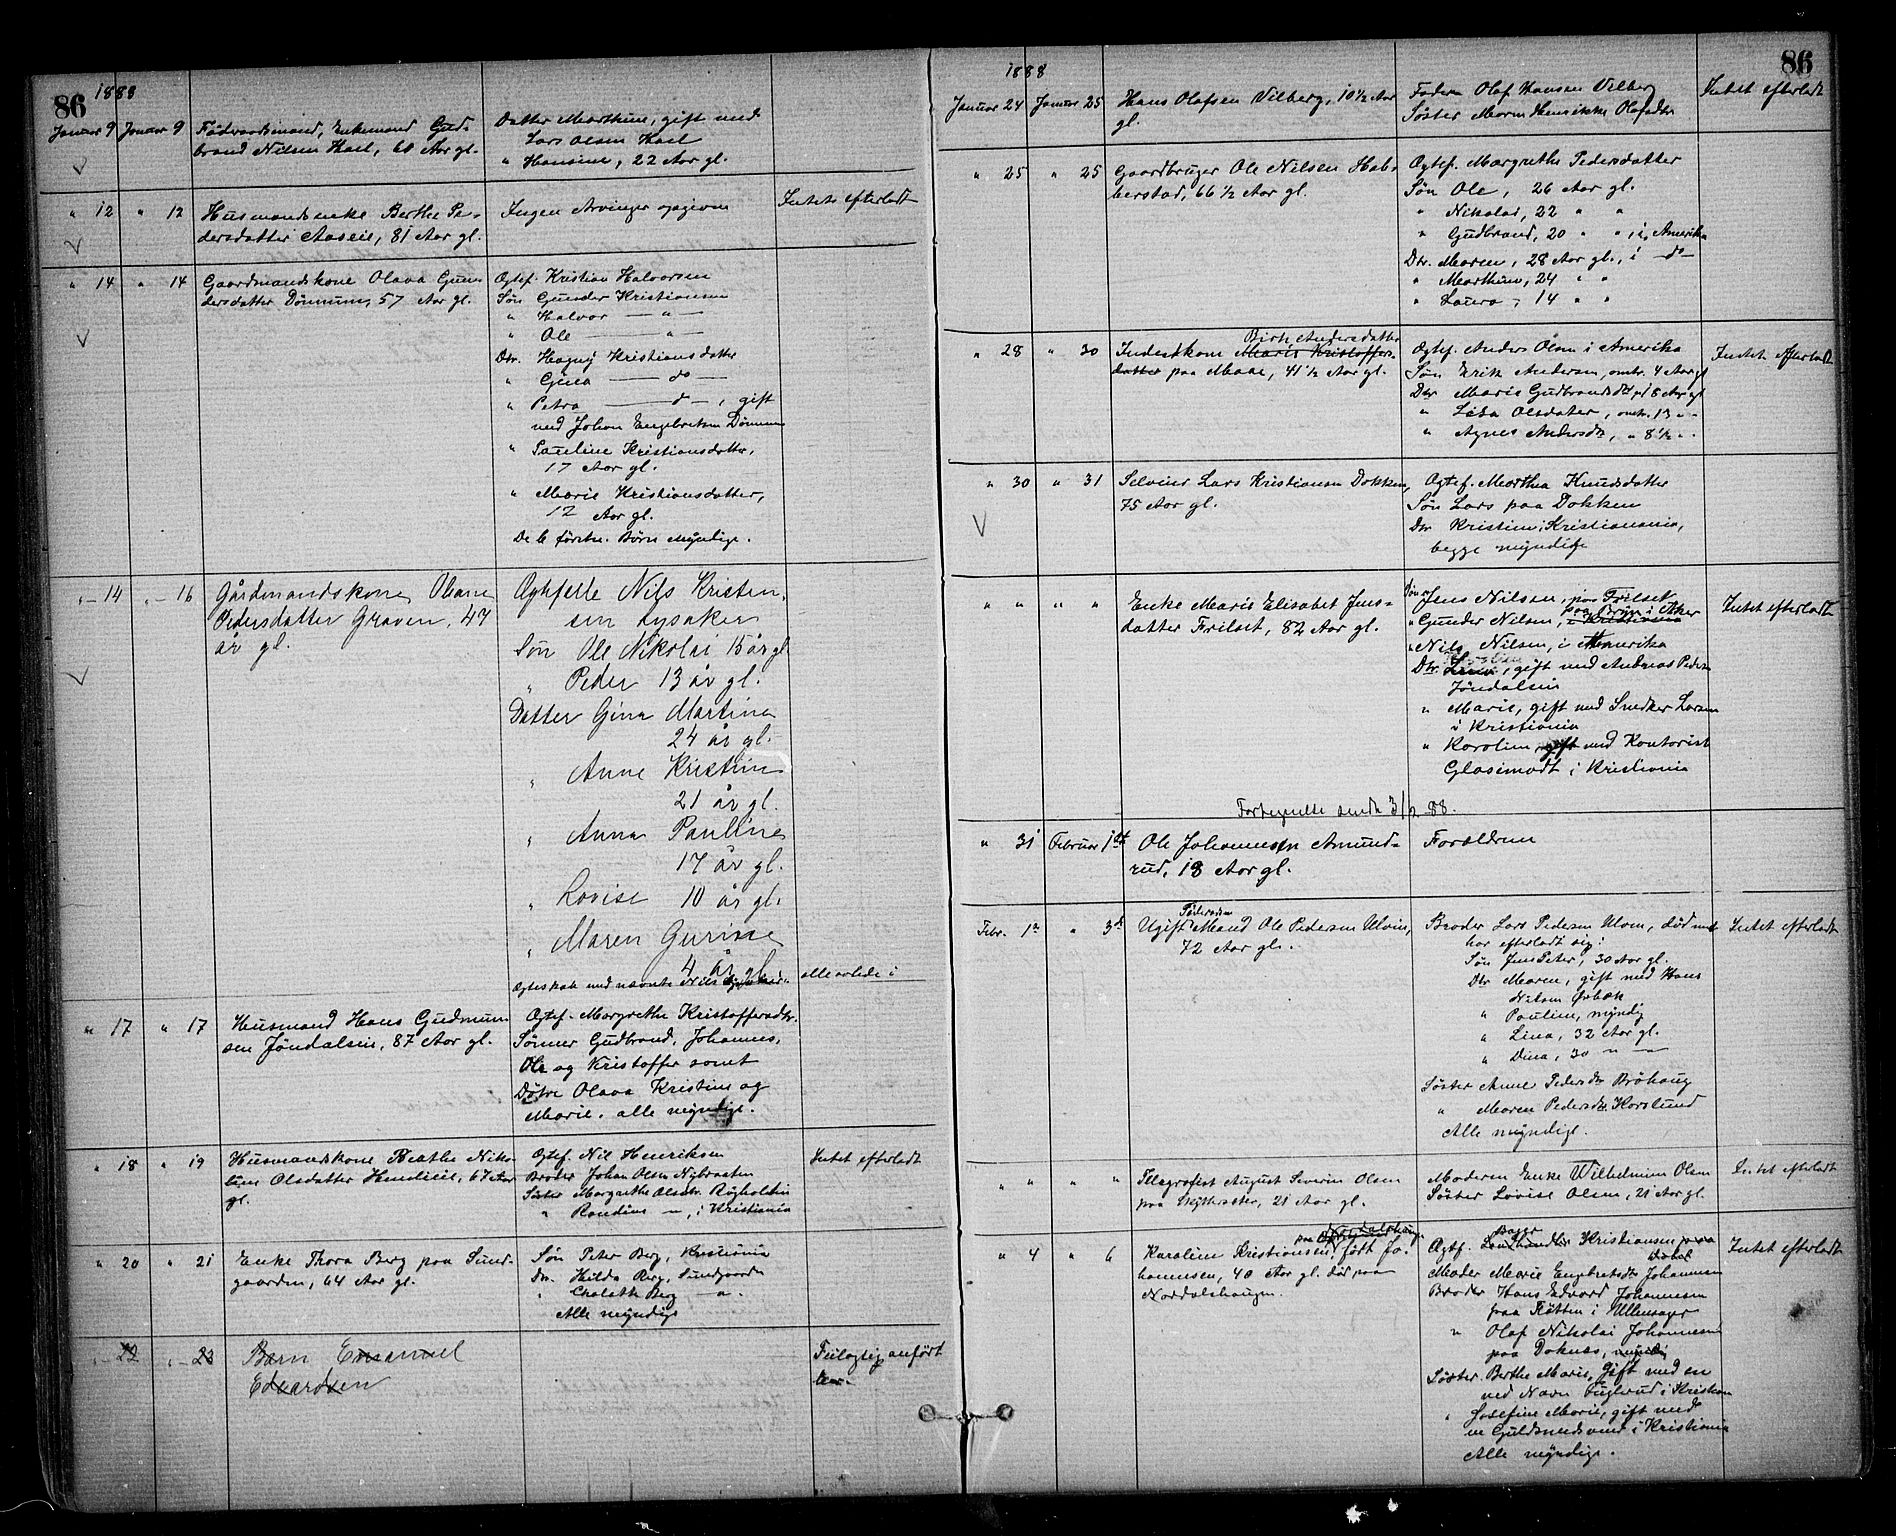 86 1888
Januar 9 Januar 9 Føderaadsmand, Enkemand Gud-
brand Nilsen Hael, 68 Aar gl.
Datter Marthine, gift med
Lars Olsen Hael
" Hansine, 22 Aar gl.
" 12 " 12 Husmandsenke Berthe Pe-
dersdatter Aaseie, 81 Aar gl.
Ingen Arvinger opgiven
Intet efterladt
" 14 " 14 Gaardmandskone Olava Gun-
dersdatter Dønnum, 57 Aar gl.
Ogtef. Kristian Halvorsen
Søn Gunder Kristiansen
" Halvor — " —
" Ole — " —
Dtr. Hagny Kristiansdatter
" Gina — do —
" Petra — d — , gift
med Johan Engebretsen Dønnum
" Pauline Kristiansdatter,
17 Aar gl.
" Marie Kristiansdatter,
12 Aar gl.
De 6 førstn. Børn Myndige.
" — 14 " — 16 Gårdmandskone Oleane
Pedersdatter Graven, 47
år gl.
Ægtefelle Nils Kristen-
sen Lysaker
Søn Ole Nikolai 15 år gl
" Peder 13 år gl.
Datter Gina Martine
24 år gl.
" Anne Kristine
21 år gl.
" Anna Pauline
17 år gl.
" Lovise 10 år gl.
" Maren Gurine
4 år gl.
Ægteskab med nævnte Nils
alle avlede i
" 17 " 17 Husmand Hans Gudmun-
sen Jøndalseie, 87 Aar gl.
Ogtef. Margrethe Kristoffersdtr.
Sønner Gudbrand, Johannes,
Ole og Kristoffer samt
Døtre Olava Kristine og
Marie. alle myndige.
" 18 " 19 Husmandskone Beathe Niko-
line Olsdatter Hendieie, 67 Aar
gl.
Ogtef. Nil Henriksen
Broder Johan Olsen Nybraaten
Søster Margrethe Olsdtr. Røyholdtin
" Randine — " —, i Kristiania
Intet efterladt
" 20 " 21 Enke Thora Berg paa Sund-
gaarden, 64 Aar gl.
Søn Peter Berg, Kristiania
Dtr. Hilda Berg, Sundgaarden
" Chalotte Berg — " —
Alle myndige
" — 22 " — 23 Barn Emanuel
Edvardsen
Feilagtig anført
her.
86
1888
Januar 24 Januar 25 Hans Olafsen Vilberg, 10 1/2 Aar
gl.
Faderen Olaf Hansen Vilberg
Søster Maren Henrikke Olafsdtr
Intet efterladt
" 25 " 25 Gaardbruger Ole Nilsen Hab-
berstad, 66 1/2 Aar gl.
Ogtef. Margrethe Pedersdatter
Søn Ole, 26 Aar gl.
" Nikolai, 22 " "
" Gudbrand, 20 " " , i Amerika
Dtr. Maren, 28 Aar gl., i — d —
" Marthine, 24 " "
" Laura, 14 " "
" 28 " 30 Indestkone Marie Kristoffers- Birthe Andersdatter
datter paa Moae, 41 1/2 Aar gl.
Ogtef. Anders Olsen i Amerika
Søn Erik Andersen, omtr. 4 Aar gl
Dtr Marie Gudbrandsdtr 18 Aar gl
" Lisa Olsdater, omtr. 13 " "
" Agnes Andersdtr, " 8 1/2 " "
Intet efterladt
" 30 " 31 Selveier Lars Kristiansen Dokken,
75 Aar gl.
Ogtef. Marthea Knudsdatter
Søn Lars paa Dokken
Dtr Kristine i Kristiania,
begge myndige
" " " " Enke Marie Elisabet Jens-
datter Frilset, 82 Aar gl.
Søn Jens Nilsen, paa Frilset
paa Bryn i Aker
" Gunder Nilsen, i Kristiania
" Nils Nilsen, i Amerika
Dtr. , gift med Andreas Peder
Jøndalsein
" Marie, gift med Snedker Larsen
i Kristiania
" Karoline, gift med Kontorist
Glosimodt i Kristiania
Intet efterladt
Fortegnelse sendt 3/2 88.
" 31 Februar 1st Ole Johannesen Amund-
rud, 18 Aar gl.
Forældrene
Febr. 1st " 3d Ugift Føderaads Mand Ole Pedersen Ulvin,
72 Aar gl.
Broder Lars Pedersen Ulven, død men
har efterladt sig:
Søn Jens Peter, 30 Aar gl.
Dtr Maren, gift med Hans
Nilsen Ørbæk
" Pauline, myndig
" Lina, 32 Aar gl.
" Dina, 30 " —
Søster Anne Pedersdtr Bråhaug
" Maren Pedersdtr. Korslund
Alle myndige.
Intet efterladt
" " " " Telegrafist August Severin Olsen
paa , 21 Aar gl.
Moderen Enke Wilhelmine Olsen
Søster Lovise Olsen, 21 Aar gl.
Intet efterladt
" 4 " 6 paa Nordalshaugen
Karoline Kristiansen, født Jo-
hannesen, 40 Aar gl. død paa
Nordalshaugen.
Bager
Ogtf. Landhandler Kristiansen paa
Moder Marie Engebretsdtr Johannesen
Broder Hans Edvard Johannesen
paa Røtten i Ullensager
" Olaf Nikolai Johannesen
paa Doknæs, myndig
Søster Berthe Marie, gift med en
ved Navn Fuglerud i Kristiania
" Josefine Marie, gift med
en Guldsmedsvend i Kristiania
Alle myndige.
Intet efterladt